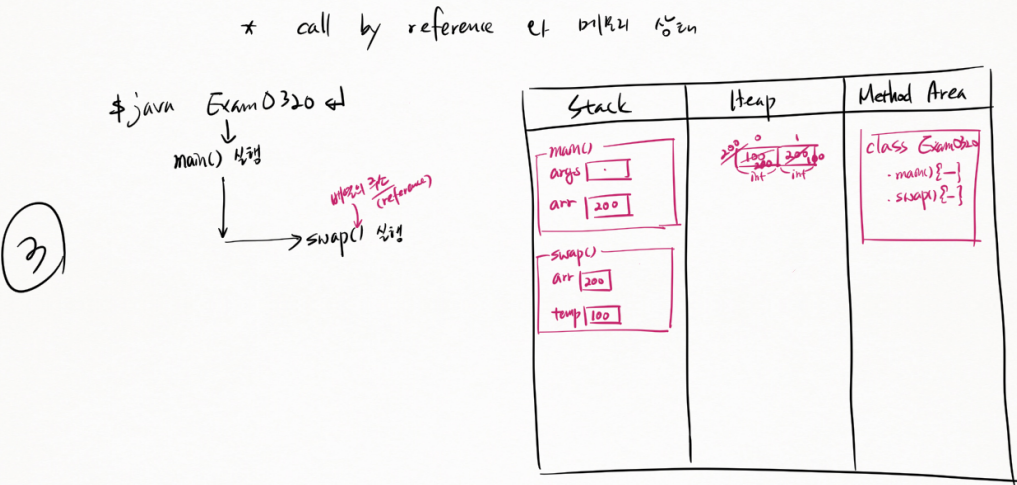 * call by reference 와 메모리 상태
$ java Exam0320 ↵
main() 실행
배열의 주소
(reference)
swap() 실행
3
Stack
Heap
Method Area
main()
args .
arr 200
swap()
arr 200
temp 100
0 1
200 100 200
200 100
int int
class Exam0320
. main() {—}
. swap() {-}